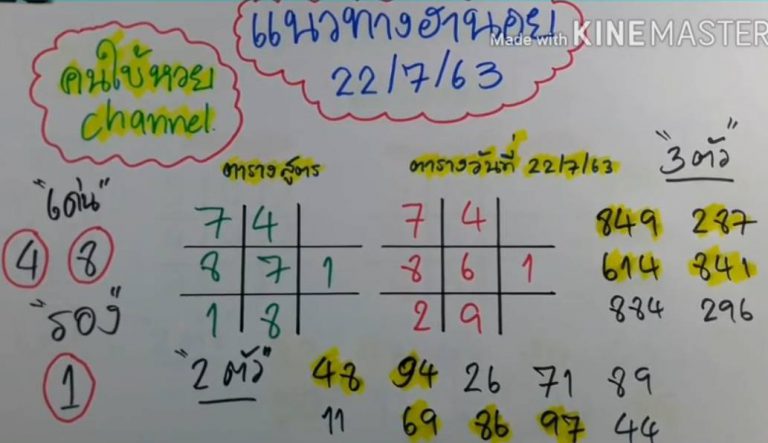 แนวทางฮานอย
22/7/63
Made with KINEMASTER
คนใบ้หวย
channel.
ตารางสูตร
7 4
8 7 1
1 8
ตารางวันที่ 22/7/63
7 4
8 6 1
2 9
"3 ตัว"
849 287
614 841
884 296
"เด่น"
4 8
"รอง"
1
"2 ตัว"
48 94 26 71 89
11 69 86 97 44